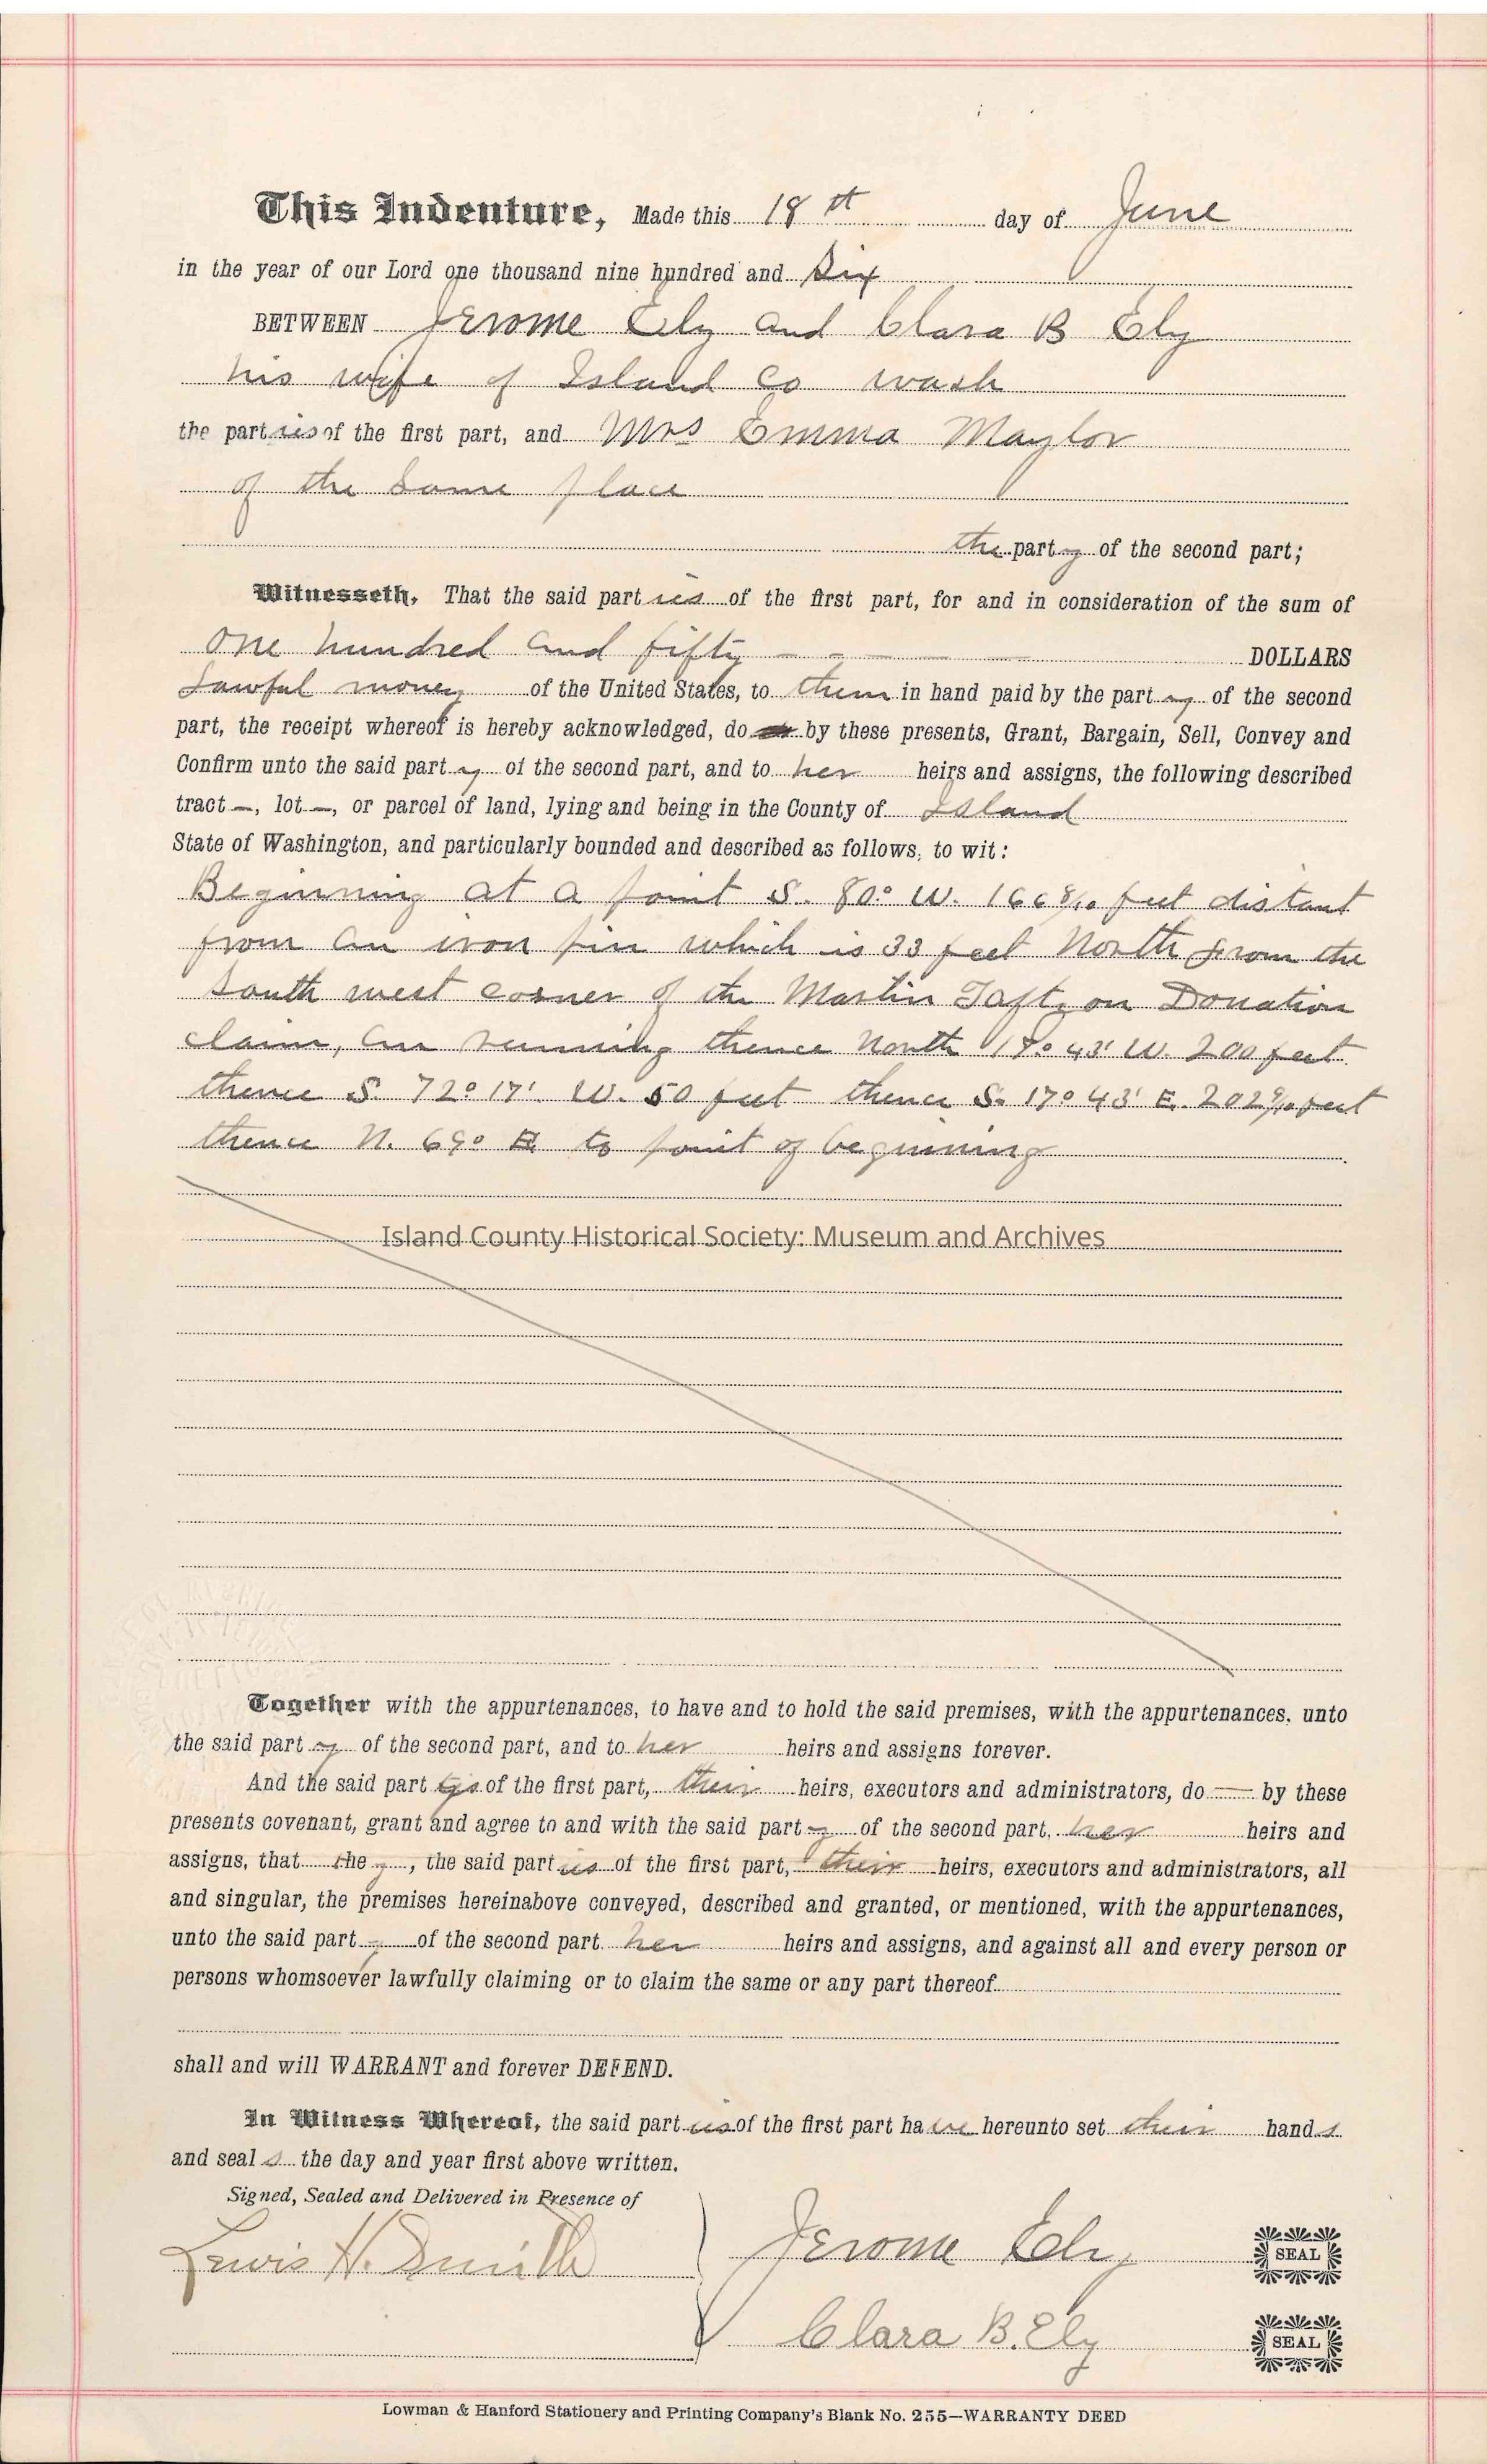 This Indenture, Made this 18th day of June
in the year of our Lord one thousand nine hundred and Six
BETWEEN Jerome Ely and Clara B Ely
his wife of Island Co wash
the parties of the first part, and Mrs Emma Maylor
of the same place
the party of the second part;
Witnesseth, That the said parties of the first part, for and in consideration of the sum of
One hundred and fifty — — — DOLLARS
Lawful money of the United States, to them in hand paid by the party of the second
part, the receipt whereof is hereby acknowledged, do by these presents, Grant, Bargain, Sell, Convey and
Confirm unto the said party of the second part, and to her heirs and assigns, the following described
tract —, lot —, or parcel of land, lying and being in the County of Island
State of Washington, and particularly bounded and described as follows, to wit:
Beginning at a point S. 80° W. 166 8/10 feet distant
from an iron pin which is 33 feet North from the
South west corner of the Martin Taft on Donation
claim, running thence North 17° 43' W. 200 feet
thence S. 72° 17' W. 50 feet thence S. 17° 43' E. 202 9/10 feet
thence N. 69° E to point of beginning
Island County Historical Society: Museum and Archives
Together with the appurtenances, to have and to hold the said premises, with the appurtenances, unto
the said party of the second part, and to her heirs and assigns forever.
And the said parties of the first part, their heirs, executors and administrators, do — by these
presents covenant, grant and agree to and with the said party of the second part, her heirs and
assigns, that they, the said parties of the first part, their heirs, executors and administrators, all
and singular, the premises hereinabove conveyed, described and granted, or mentioned, with the appurtenances,
unto the said party of the second part her heirs and assigns, and against all and every person or
persons whomsoever lawfully claiming or to claim the same or any part thereof
shall and will WARRANT and forever DEFEND.
In Witness Whereof, the said parties of the first part have hereunto set their hands
and seals the day and year first above written.
Signed, Sealed and Delivered in Presence of
Lewis H. Smith
Jerome Ely SEAL
Clara B. Ely SEAL
Lowman & Hanford Stationery and Printing Company's Blank No. 255—WARRANTY DEED